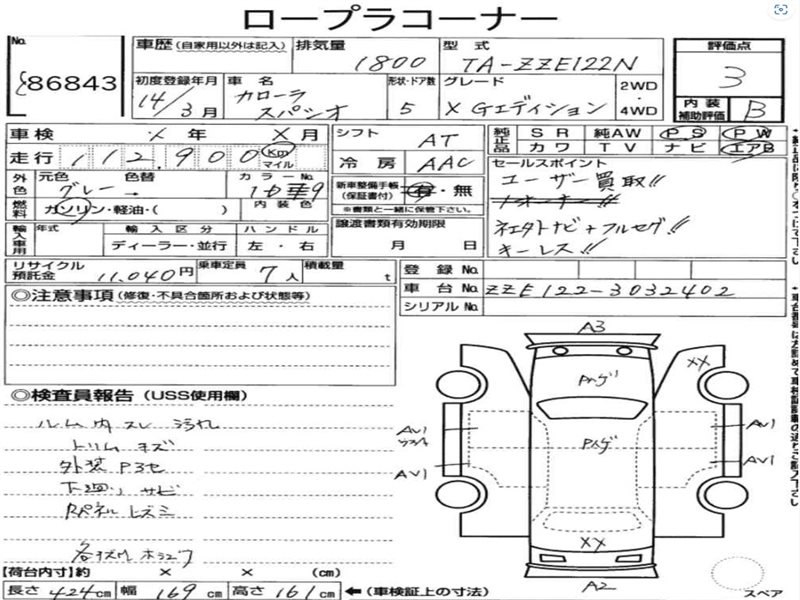 ロープラコーナー
No.
86843
車歴 (自家用以外は記入)
排気量 1800
型式 TA-ZZE122N
評価点 3
初度登録年月 14/3月
車名 カローラ スパシオ
形状・ドア数 5
グレード X Gエディション
2WD ・ 4WD
内装補助評価 B
車検 × 年 × 月
シフト AT
走行 112,900 Km マイル
冷房 AAC
純正品 SR 純AW PS PW
カワ TV ナビ エアB
外色 元色 色替 カラーNo.
グレー →
新車整備手帳(保証書付) 有・無
※書類と一緒に保管下さい。
セールスポイント
ユーザー買取!!
ナビ+フルセグ!!
キーレス!!
燃料 ガソリン・軽油・( )
内装色
譲渡書類有効期限
月 日
輸入車用 年式 輸入区分 ハンドル
ディーラー・並行 左・右
リサイクル預託金 11,040円
乗車定員 7人
積載量 t
登録No.
車台No. ZZE122-3032402
シリアルNo.
◎注意事項 (修復・不具合箇所および状態等)
◎検査員報告 (USS使用欄)
ルーム内スレ 汚れ
トリム キズ
外装 P3セ
下廻り サビ
Rパネル ヒズミ
A3
XX
Pハゲ
Pハゲ
AU1
AU1
AU1
AU1
XY
A2
スペア
【荷台内寸】約 × × (cm)
長さ 424cm 幅 169cm 高さ 161cm ←(車検証上の寸法)